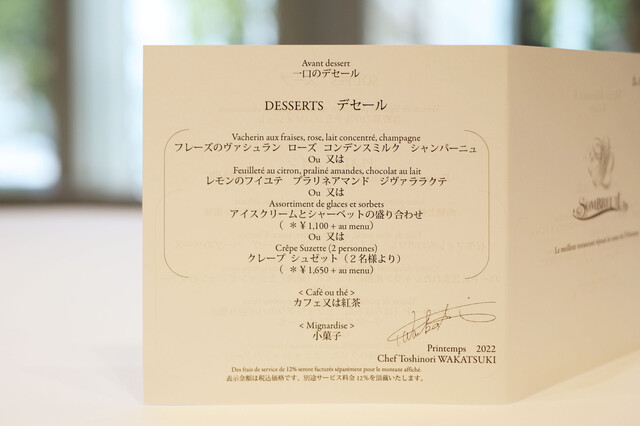 Avant dessert
一口のデセール
DESSERTS デセール
Vacherin aux fraises, rose, lait concentré, champagne
フレーズのヴァシュラン ローズ コンデンスミルク シャンパーニュ
Ou 又は
Feuilleté au citron, praliné amandes, chocolat au lait
レモンのフイユテ プラリネアマンド ジヴァララクテ
Ou 又は
Assortiment de glaces et sorbets
アイスクリームとシャーベットの盛り合わせ
( ＊￥1,100 + au menu)
Ou 又は
Crêpe Suzette (2 personnes)
クレープ シュゼット（２名様より）
( ＊￥1,650 + au menu)
< Café ou thé >
カフェ又は紅茶
< Mignardise >
小菓子
Printemps 2022
Chef Toshinori WAKATSUKI
Des frais de service de 12% seront facturés séparément pour le montant affiché
表示金額は税込価格です。別途サービス料金 12%を頂戴いたします。